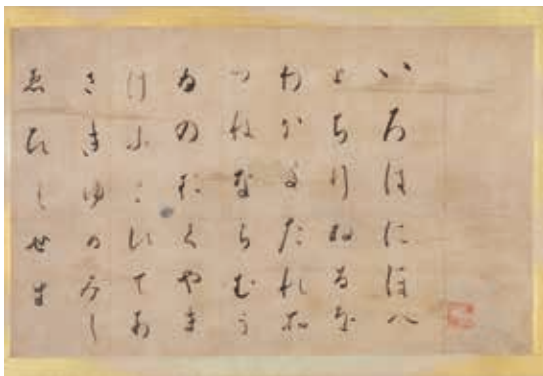 いろはにほへ
とちりぬるを
わかよたれそ
つねならむう
ゐのおくやま
けふこえてあ
さきゆめみし
ゑひもせす